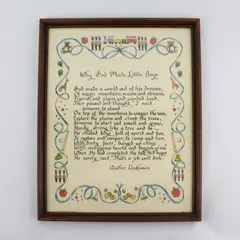 Why God Made Little Boys
God made a world out of his dreams,
Of magic mountains, oceans and streams,
Prairies and plains and wooded land,
Then paused and thought, "I need
someone to stand
On top of the mountains, to conquer the seas,
Explore the plains and climb the trees,
Someone to start out small and grow,
Sturdy, strong, like a tree" and so
He created boys, full of spirit and fun,
To explore and conquer, to romp and run,
With dirty faces, banged up chins
With courageous hearts and boyish grins.
When He had completed the task He'd begun,
He surely said, "That's a job well done."
Author Unknown